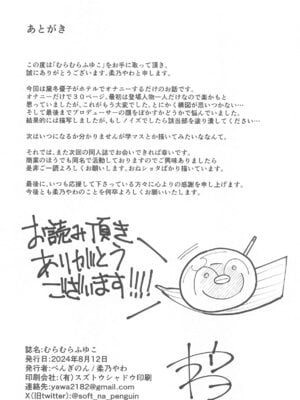 あとがき
この度は「むらむらふゆこ」をお手に取って頂き、
誠にありがとうございます、柔乃やわと申します。
今回は黛冬優子がホテルでオナニーするだけのお話です。
オナニーだけで30ページ、最初は登場人物一人だけなので楽かもと
思っていましたが、これがもう大変でした、とにかく構図が思いつかない…
そして最後までプロデューサーの顔をぼかすかどうかで悩んでいました。
結果的には描写しましたが、もしノイズでしたら該当部を塗り潰してください…
次はいつになるか分かりませんが学マスとか描いてみたいななんて。
それでは、また次回の同人誌でお会いできれば幸いです。
商業のほうでも同名で活動しておりますのでご興味ありましたら
是非ご一読よろしくお願いします、おねショタばかり描いています。
最後に、いつも応援して下さっている方々に心よりの感謝を申し上げます。
今後とも柔乃やわのことを何卒よろしくお願いいたします。
お読み頂き
ありがとう
ございます!!!!
誌名:むらむらふゆこ
発行日:2024年8月12日
発行者:ぺんぎのん/柔乃やわ
印刷会社:(有)スズトウシャドウ印刷
連絡先:yawa2182@gmail.com
X(旧twitter):@soft_na_penguin
やわ